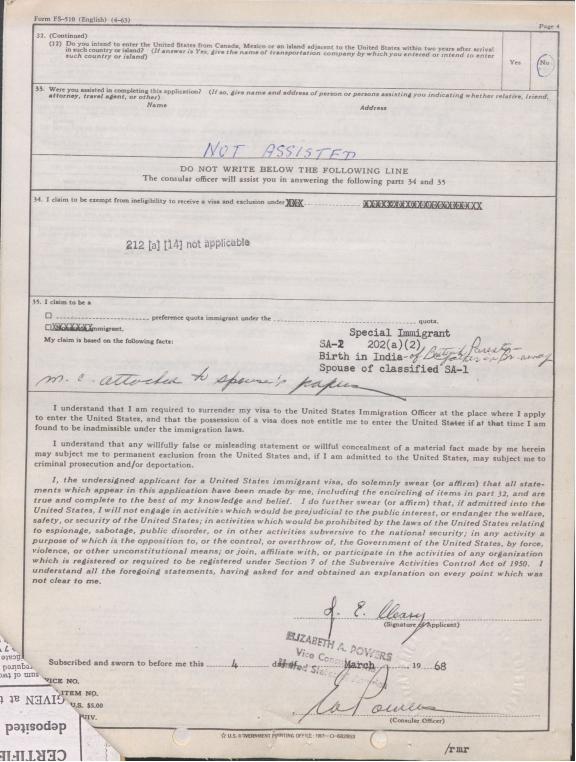 Form FS-510 (English) (4-65)
Page 4
32. (Continued)
(12) Do you intend to enter the United States from Canada, Mexico or an island adjacent to the United States within two years after arrival
in such country or island? (If answer is Yes, give the name of transportation company by which you entered or intend to enter
such country or island)
Yes No
33. Were you assisted in completing this application? (If so, give name and address of person or persons assisting you indicating whether relative, friend,
attorney, travel agent, or other)
Name Address
NOT ASSISTED
DO NOT WRITE BELOW THE FOLLOWING LINE
The consular officer will assist you in answering the following parts 34 and 35
34. I claim to be exempt from ineligibility to receive a visa and exclusion under
212 [a] [14] not applicable
35. I claim to be a
preference quota immigrant under the quota.
immigrant.
My claim is based on the following facts:
Special Immigrant
SA-2 202(a)(2)
Birth in India- of British Parents-
Spouse of classified SA-1
m. c. attached to spouse's papers
I understand that I am required to surrender my visa to the United States Immigration Officer at the place where I apply
to enter the United States, and that the possession of a visa does not entitle me to enter the United States if at that time I am
found to be inadmissible under the immigration laws.
I understand that any willfully false or misleading statement or willful concealment of a material fact made by me herein
may subject me to permanent exclusion from the United States and, if I am admitted to the United States, may subject me to
criminal prosecution and/or deportation.
I, the undersigned applicant for a United States immigrant visa, do solemnly swear (or affirm) that all state-
ments which appear in this application have been made by me, including the encircling of items in part 32, and are
true and complete to the best of my knowledge and belief. I do further swear (or affirm) that, if admitted into the
United States, I will not engage in activities which would be prejudicial to the public interest, or endanger the welfare,
safety, or security of the United States; in activities which would be prohibited by the laws of the United States relating
to espionage, sabotage, public disorder, or in other activities subversive to the national security; in any activity a
purpose of which is the opposition to, or the control, or overthrow of, the Government of the United States, by force,
violence, or other unconstitutional means; or join, affiliate with, or participate in the activities of any organization
which is registered or required to be registered under Section 7 of the Subversive Activities Control Act of 1950. I
understand all the foregoing statements, having asked for and obtained an explanation on every point which was
not clear to me.
J. E. Cleary
(Signature of Applicant)
ELIZABETH A. POWERS
Vice
Subscribed and sworn to before me this 4 day of March, 19 68
VICE NO.
ITEM NO.
U.S. $5.00
EQUIV.
EA Powers
(Consular Officer)
☆ U.S. GOVERNMENT PRINTING OFFICE: 1967
/rmr
GIVEN at
deposited
CERTIFIE